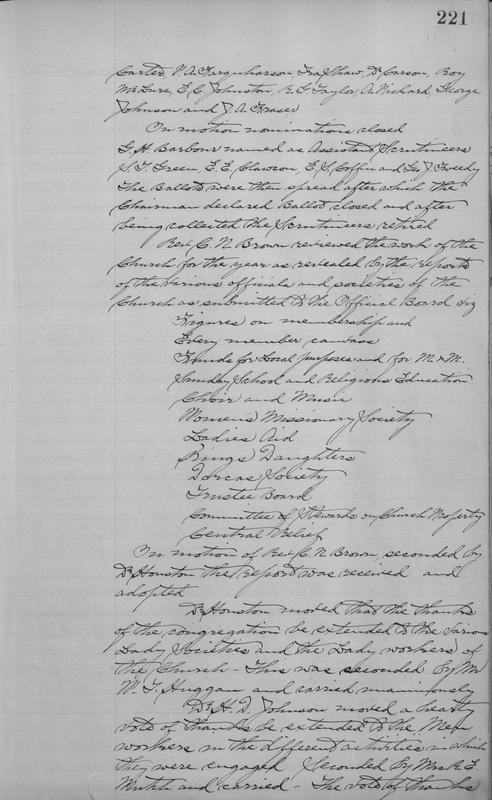 221
Carter, N. A. Farquharson, Ira Shaw, Dr Carson, Roy
McLure, E. C. Johnston, R. L. Taylor, A. Pickard, George
Johnson and J. A. Fraser
On motion nominations closed
G. H. Barbour named as Assistant Scrutineers
S. T. Green, E. E. Clawson, E. S. Coffin and Geo J. Tweedy
The Ballots were then spread after which the
Chairman declared Ballot closed and after
being collected the Scrutineers retired
Rev C. N. Brown reviewed the work of the
Church for the year as revealed by the reports
of the various officials and societies of the
Church as submitted to the Official Board viz
Figures on membership and
Every member canvass
Funds for Local purposes and for M. & M.
Sunday School and Religious Education
Choir and Music
Womens Missionary Society
Ladies Aid
Kings Daughters
Dorcas Society
Trustee Board
Committee of Stewards on Church Property
Central Relief
On motion of Rev C. N. Brown, seconded by
Dr Houston the report was received and
adopted
Dr Houston moved that the thanks
of the congregation be extended to the various
Lady Societies and the Lady workers of
the Church - This was seconded by Mr
W. T. Huggan and carried unanimously
Dr H. D. Johnson moved a hearty
vote of thanks be extended to the Men
workers in the different activities in which
they were engaged Seconded by Mrs R. E.
Mutch and carried - The vote of thanks